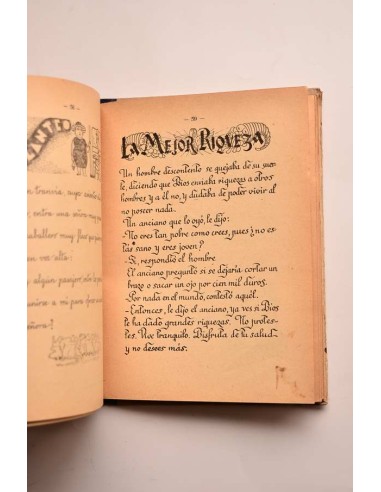 ANTE
tranvía, cuyo
entre una
caballero muy
voz alta:
algún pasajero
a mi para
— 20 —
LA MEJOR RIQUEZA
Un hombre descontento se quejaba de su suer-
te, diciendo que Dios enviaba riquezas a otros
hombres y a él no, y dudaba de poder vivir al
no poseer nada.
Un anciano que lo oyó, le dijo:
-No eres tan pobre como crees, pues ¿no es-
tás sano y eres joven?
-Sí, respondió el hombre
El anciano preguntó si se dejaría cortar un
brazo o sacar un ojo por cien mil duros.
-Por nada en el mundo, contestó aquél.
-Entonces, le dijo el anciano, ya ves si Dios
te ha dado grandes riquezas. No protes-
tes. Vive tranquilo. Disfruta de tu salud
y no desees más.